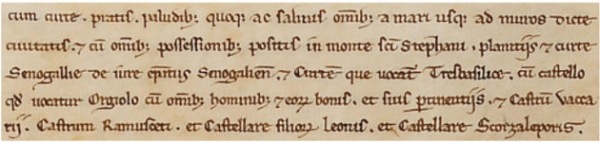 cum curte. pratis. paludib; quoq; ac salinis omib; a mari usq; ad muros dicte
ciuitatis. ⁊ cū omib; possessionib; positis in monte sc̄i Stephani. planitijs ⁊ curte
Senogallie de iure epatus Senogalien̄. ⁊ Curtem que uocat̄ Tresbasilice. cū castello
qd̄ uocatur Orgiolo cū omib; hominib; ⁊ eoꝝ bonis. et suis ꝑtinentijs. ⁊ Castrū Vacca
rij. Castrum Ramusceti. et Castellare filioꝝ Leonis. et Castellare Scorzaleporis.